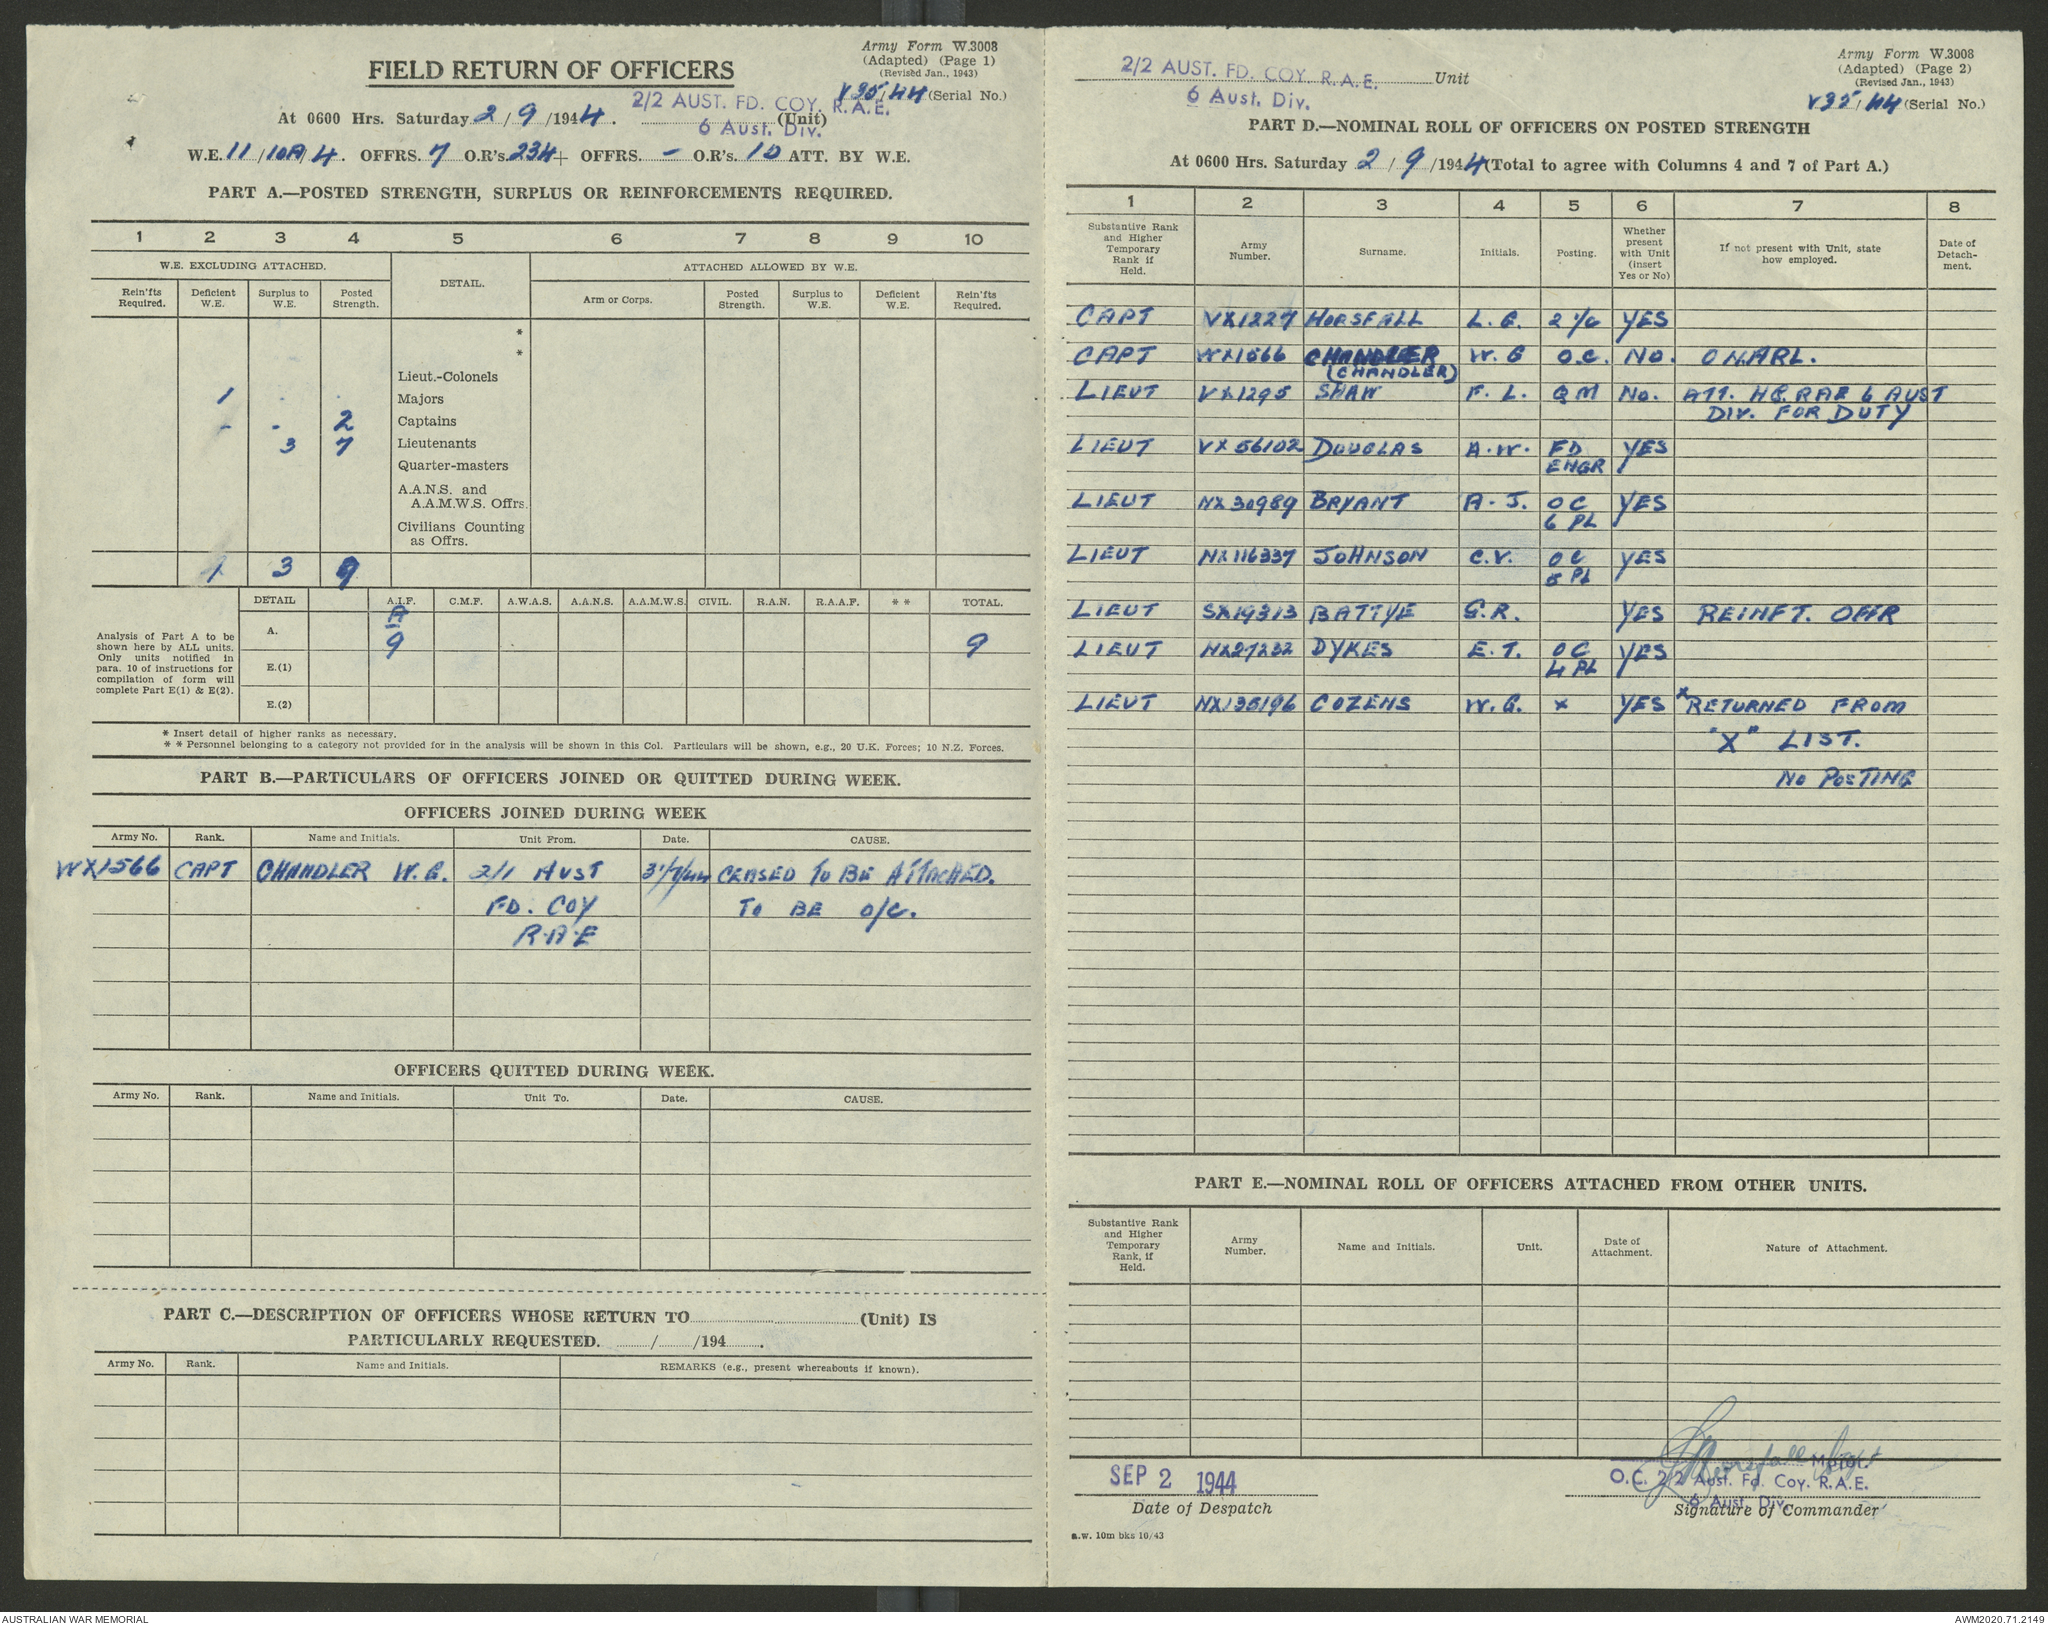 Army Form W.3008
(Adapted) (Page 1)
(Revised Jan., 1943)
FIELD RETURN OF OFFICERS
V35/44 (Serial No.)
2/2 AUST. FD. COY. R.A.E.
At 0600 Hrs. Saturday 2/9/1944. (Unit)
6 Aust. Div.
W.E. 11/10A/4. OFFRS. 7 O.R's. 234 + OFFRS. - O.R's. 10 ATT. BY W.E.
PART A.—POSTED STRENGTH, SURPLUS OR REINFORCEMENTS REQUIRED.
1 2 3 4 5 6 7 8 9 10
W.E. EXCLUDING ATTACHED. DETAIL. ATTACHED ALLOWED BY W.E.
Rein'fts Required. Deficient W.E. Surplus to W.E. Posted Strength. Arm or Corps. Posted Strength. Surplus to W.E. Deficient W.E. Rein'fts Required.
*
*
Lieut.-Colonels
1 Majors
- - 2 Captains
3 7 Lieutenants
Quarter-masters
A.A.N.S. and
A.A.M.W.S. Offrs.
Civilians Counting
as Offrs.
1 3 9
DETAIL A.I.F. C.M.F. A.W.A.S. A.A.N.S. A.A.M.W.S. CIVIL. R.A.N. R.A.A.F. * * TOTAL.
Analysis of Part A to be
shown here by ALL units.
Only units notified in
para. 10 of instructions for
compilation of form will
complete Part E(1) & E(2).
A. 9 9
E.(1)
E.(2)
* Insert detail of higher ranks as necessary.
* * Personnel belonging to a category not provided for in the analysis will be shown in this Col. Particulars will be shown, e.g., 20 U.K. Forces; 10 N.Z. Forces.
PART B.—PARTICULARS OF OFFICERS JOINED OR QUITTED DURING WEEK.
OFFICERS JOINED DURING WEEK
Army No. Rank. Name and Initials. Unit From. Date. CAUSE.
WX1566 CAPT CHANDLER W.G. 2/1 AUST CEASED TO BE ATTACHED.
FD. COY TO BE O/C.
R.A.E
OFFICERS QUITTED DURING WEEK.
Army No. Rank. Name and Initials. Unit To. Date. CAUSE.
PART C.—DESCRIPTION OF OFFICERS WHOSE RETURN TO (Unit) IS
PARTICULARLY REQUESTED. / /194 .
Army No. Rank. Name and Initials. REMARKS (e.g., present whereabouts if known).
Army Form W.3008
(Adapted) (Page 2)
(Revised Jan., 1943)
2/2 AUST. FD. COY. R.A.E. Unit
6 Aust. Div.
V35/44 (Serial No.)
PART D.—NOMINAL ROLL OF OFFICERS ON POSTED STRENGTH
At 0600 Hrs. Saturday 2/9/1944 (Total to agree with Columns 4 and 7 of Part A.)
1 2 3 4 5 6 7 8
Substantive Rank and Higher Temporary Rank if Held. Army Number. Surname. Initials. Posting. Whether present with Unit (insert Yes or No) If not present with Unit, state how employed. Date of Detach-ment.
CAPT VX1227 HORSFALL L. G. 2 i/c YES
CAPT WX1566 CHANDLER W. G O.C. NO. ON ARL.
(CHANDLER)
LIEUT VX1295 SHAW F. L. QM NO. ATT. HQ. RAE 6 AUST
DIV. FOR DUTY
LIEUT VX56102 DOUGLAS A.W. FD YES
ENGR
LIEUT NX30989 BRYANT A.J. OC YES
6 PL
LIEUT NX116337 JOHNSON C.V. OC YES
5 PL
LIEUT SX19313 BATTYE G.R. YES REINFT. OFFR
LIEUT NX27232 DYKES E.T. OC YES
4 PL
LIEUT NX135196 COZENS W.G. x YES x RETURNED FROM
"X" LIST.
NO POSTING
PART E.—NOMINAL ROLL OF OFFICERS ATTACHED FROM OTHER UNITS.
Substantive Rank and Higher Temporary Rank, if Held. Army Number. Name and Initials. Unit. Date of Attachment. Nature of Attachment.
SEP 2 1944
Date of Despatch
Major.
O.C. 2/2 Aust. Fd. Coy. R.A.E.
6 Aust. Div.
Signature of Commander
a.w. 10m bks 10/43
AUSTRALIAN WAR MEMORIAL
AWM2020.71.2149